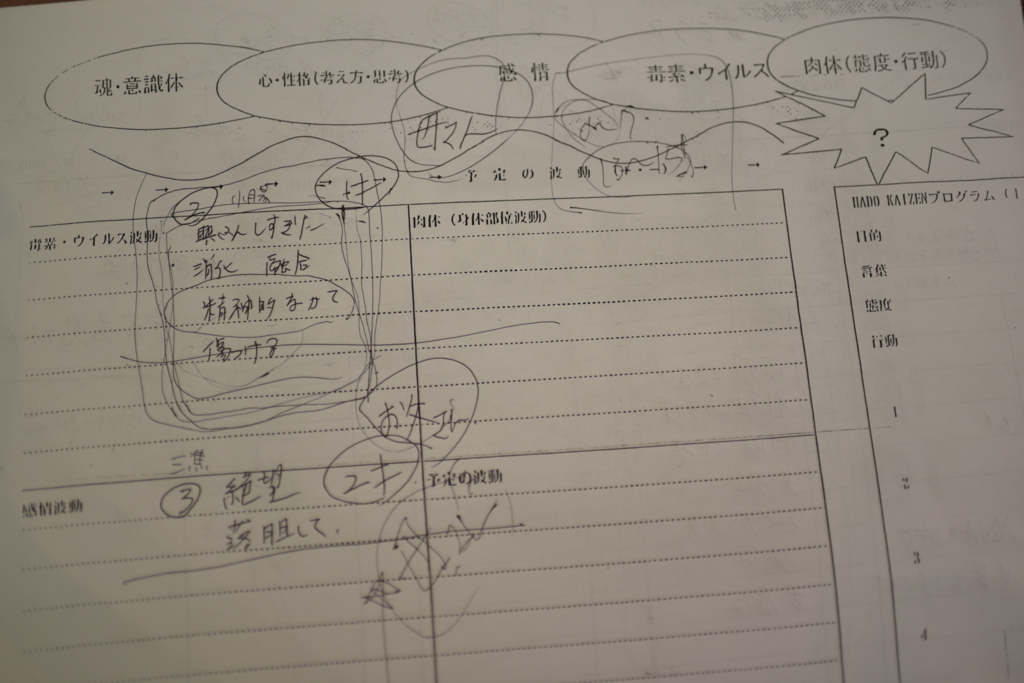 魂・意識体
心・性格(考え方・思考)
感情
毒素・ウイルス
肉体(態度・行動)
?
母スト
→ → → → → → 予定の波動 → →
② 小腸
毒素・ウイルス波動
しすぎた
消化 融合
精神的なかて
傷つける
肉体(身体部位波動)
HADO KAIZENプログラム(1
目的
言葉
態度
行動
1
2
3
4
お父さん
三焦
③ 絶望
落胆して、
感情波動
予定の波動